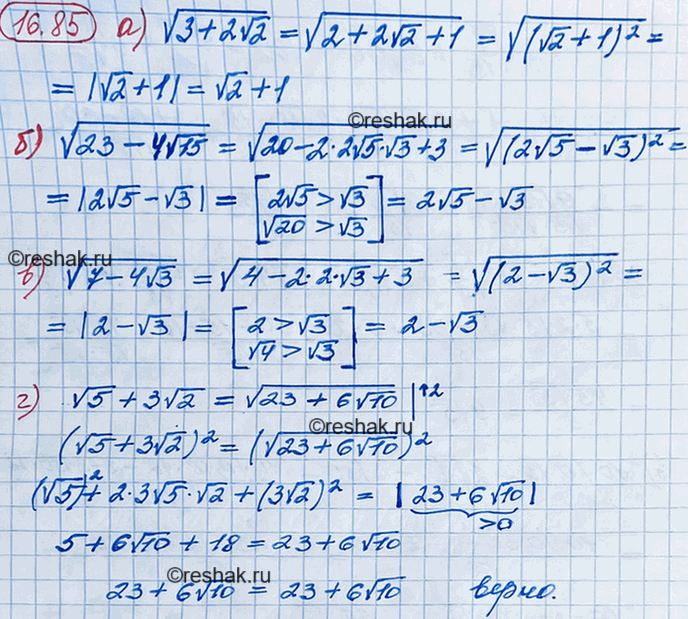 16.85 а) √(3+2√2) = √(2+2√2+1) = √((√2+1)²) =
= |√2+1| = √2+1
©reshak.ru
б) √(23-4√15) = √(20-2·2√5·√3+3) = √((2√5-√3)²) =
= |2√5-√3| = [2√5>√3 = 2√5-√3
√20>√3]
©reshak.ru
в) √(7-4√3) = √(4-2·2·√3+3) = √((2-√3)²) =
= |2-√3| = [2>√3 = 2-√3
√4>√3]
г) √5+3√2 = √(23+6√10) |↑2
©reshak.ru
(√5+3√2)² = (√(23+6√10))²
(√5)²+2·3√5·√2+(3√2)² = |23+6√10|
>0
5+6√10+18 = 23+6√10
©reshak.ru
23+6√10 = 23+6√10 верно.